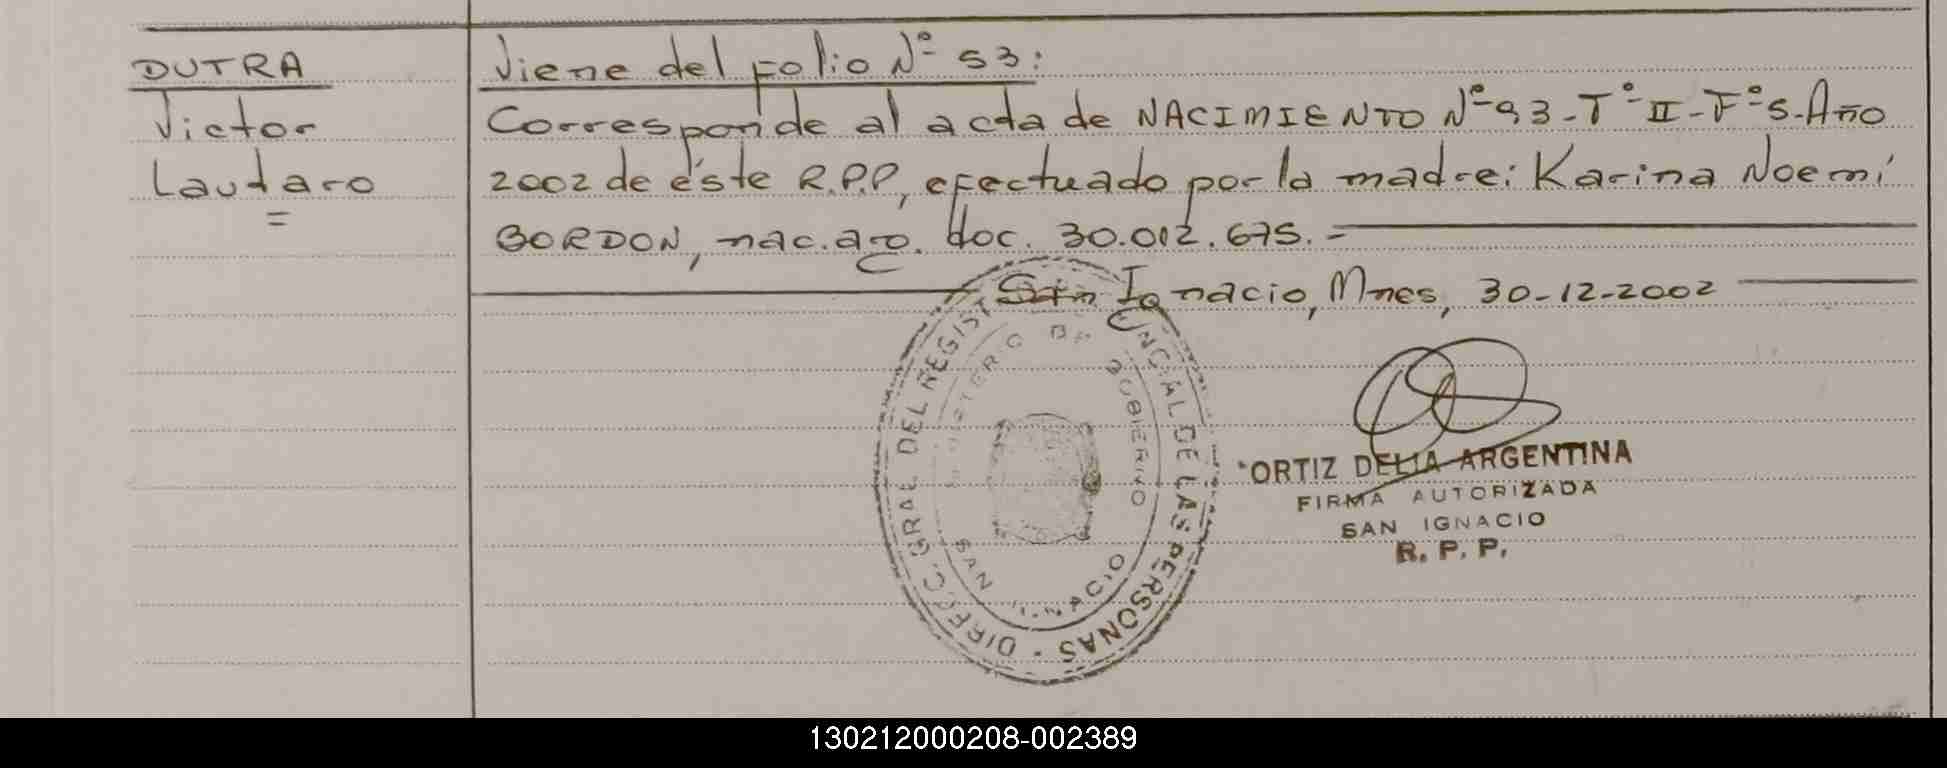 DUTRA
Victor
Lautaro
=
Viene del folio Nº 53:
Corresponde al acta de NACIMIENTO Nº 93-Tº II-Fº 5-Año
2002 de éste R.P.P, efectuado por la madre: Karina Noemí
BORDON, nac. arg. doc. 30.012.675.-
San Ignacio, Mnes, 30-12-2002
DIRECC. GRAL DEL REGIST NCIAL DE LAS PERSONAS -
MINISTERIO DE GOBIERNO
SAN IGNACIO
ORTIZ DELIA ARGENTINA
FIRMA AUTORIZADA
SAN IGNACIO
R. P. P.
130212000208-002389